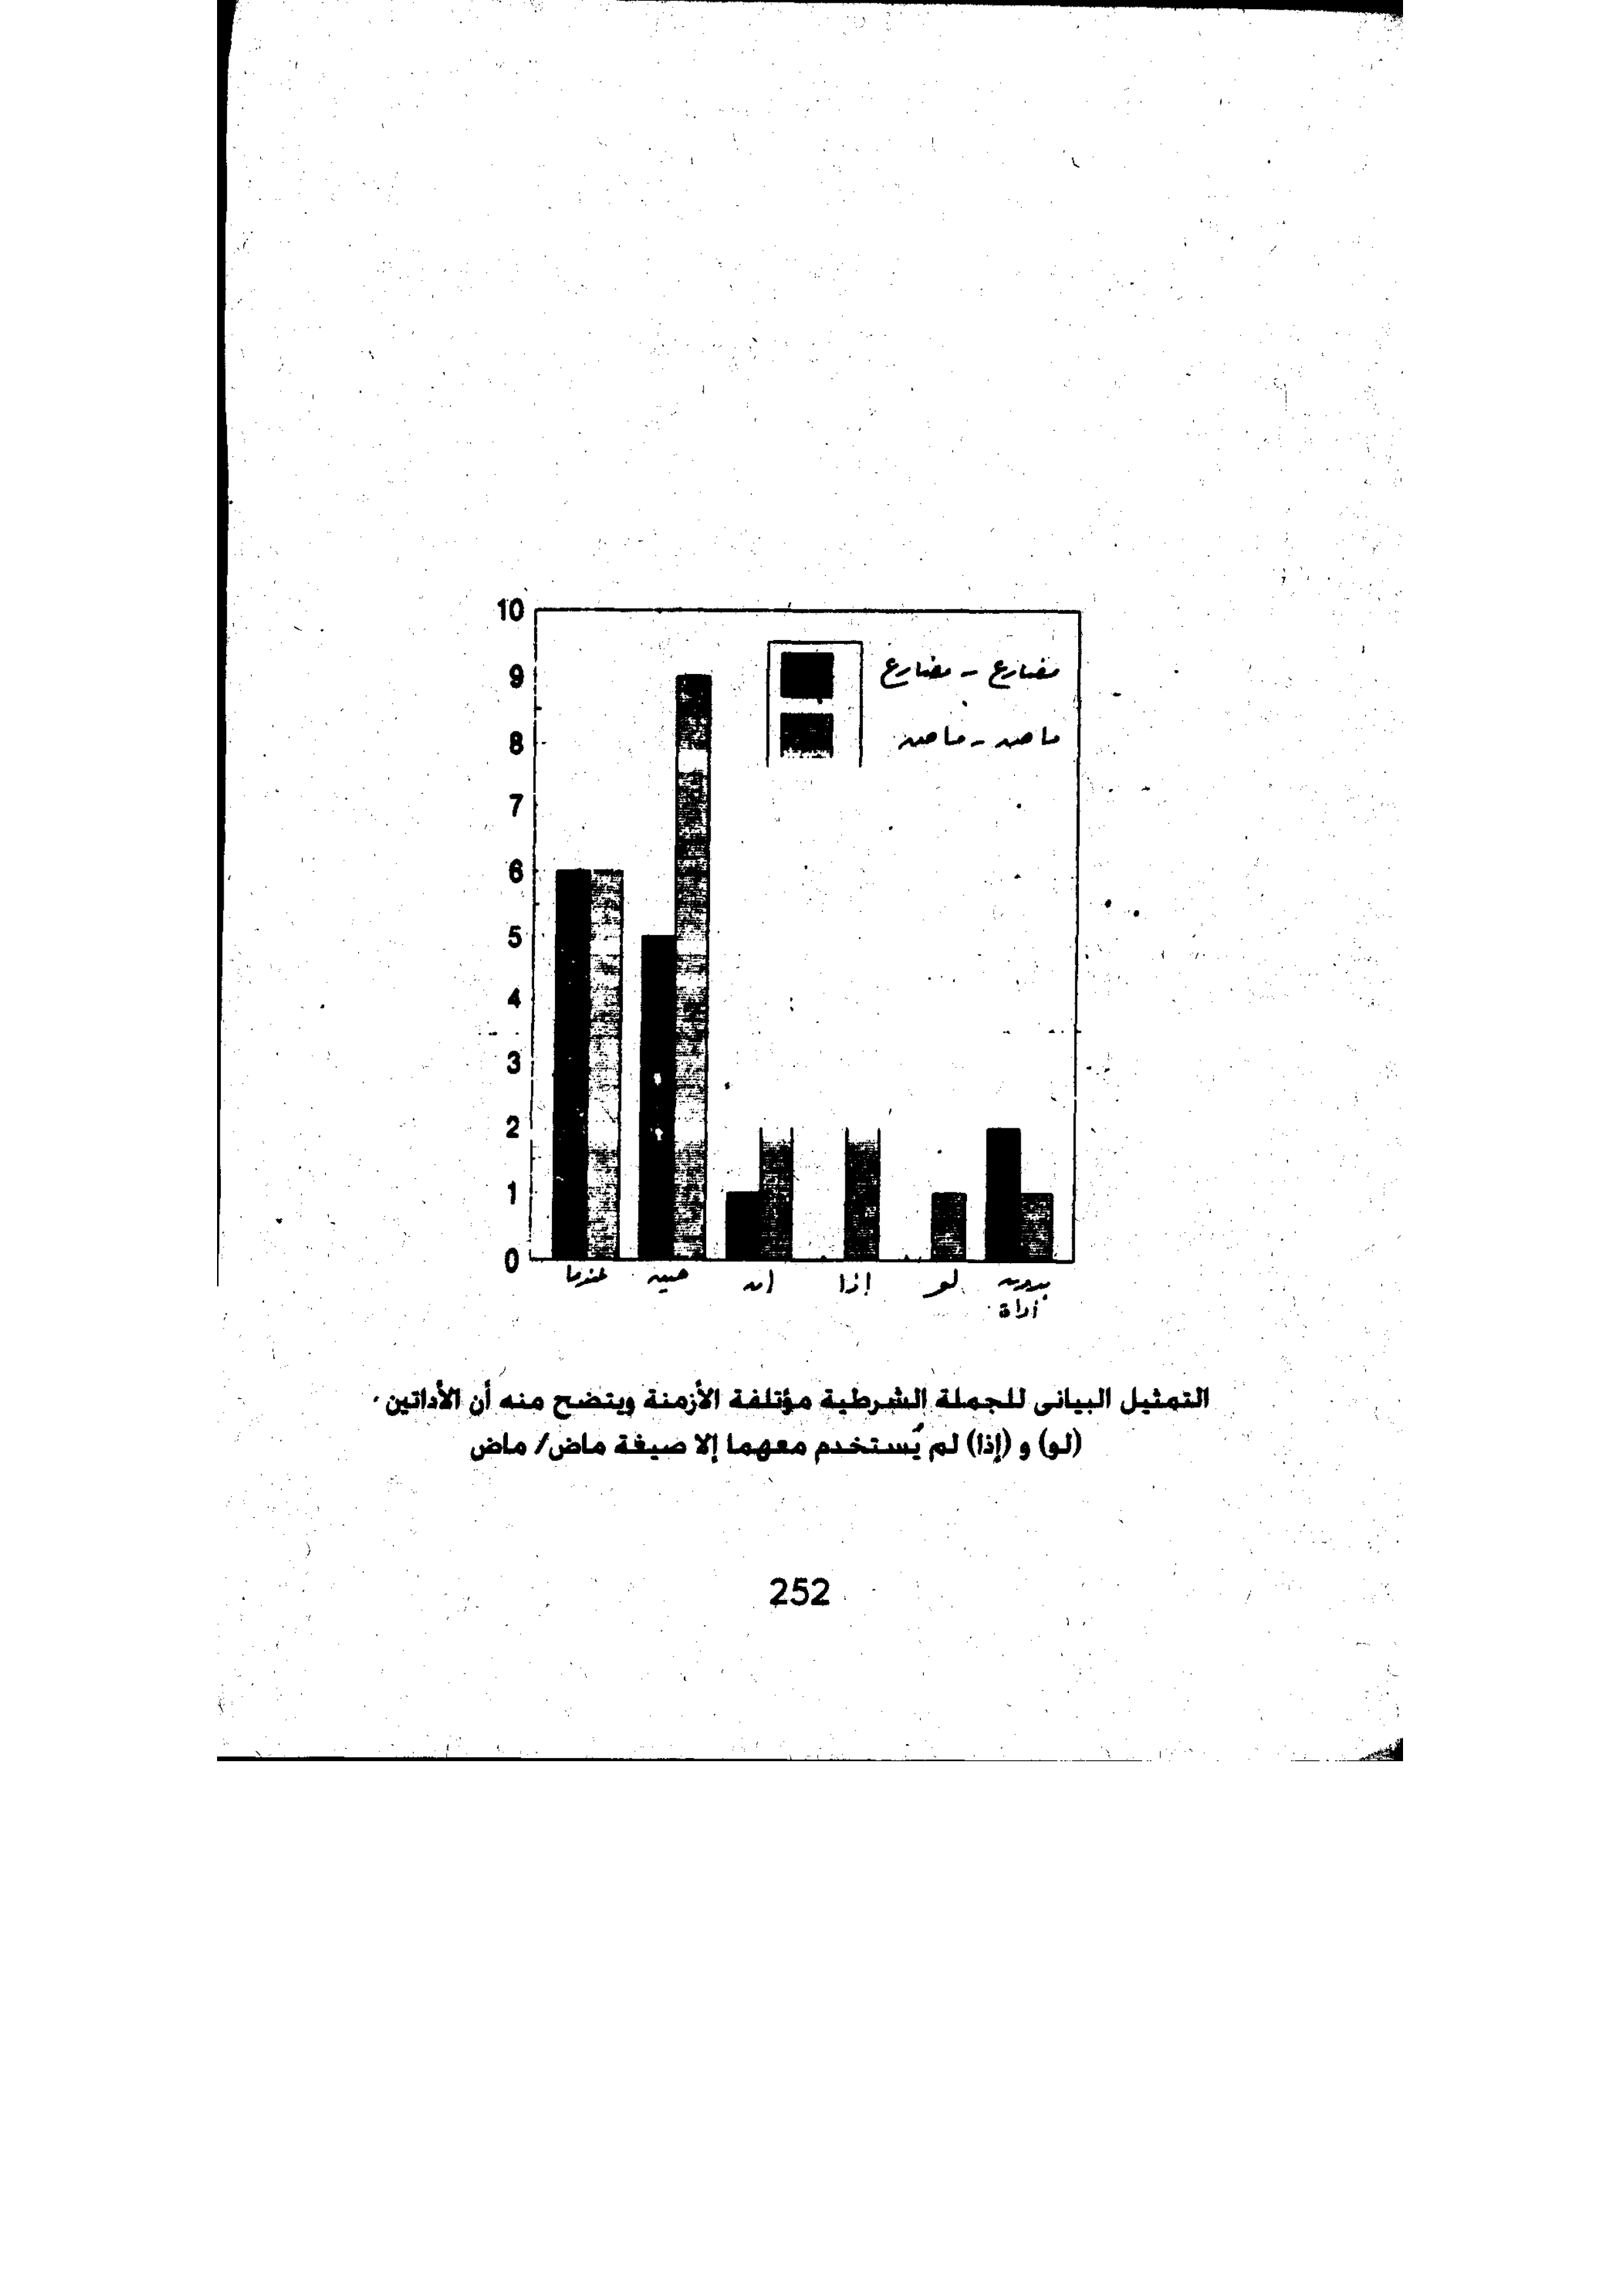 10
9
8
7
6
5
4
3
2
1
0
مضارع - مضارع
ماض - ماض
عندما
حين
إن
إذا
لو
بدون
أداة
التمثيل البيانى للجملة الشرطية مؤتلفة الأزمنة ويتضح منه أن الأداتين
(لو) و (إذا) لم يُستخدم معهما إلا صيغة ماض/ ماض
252